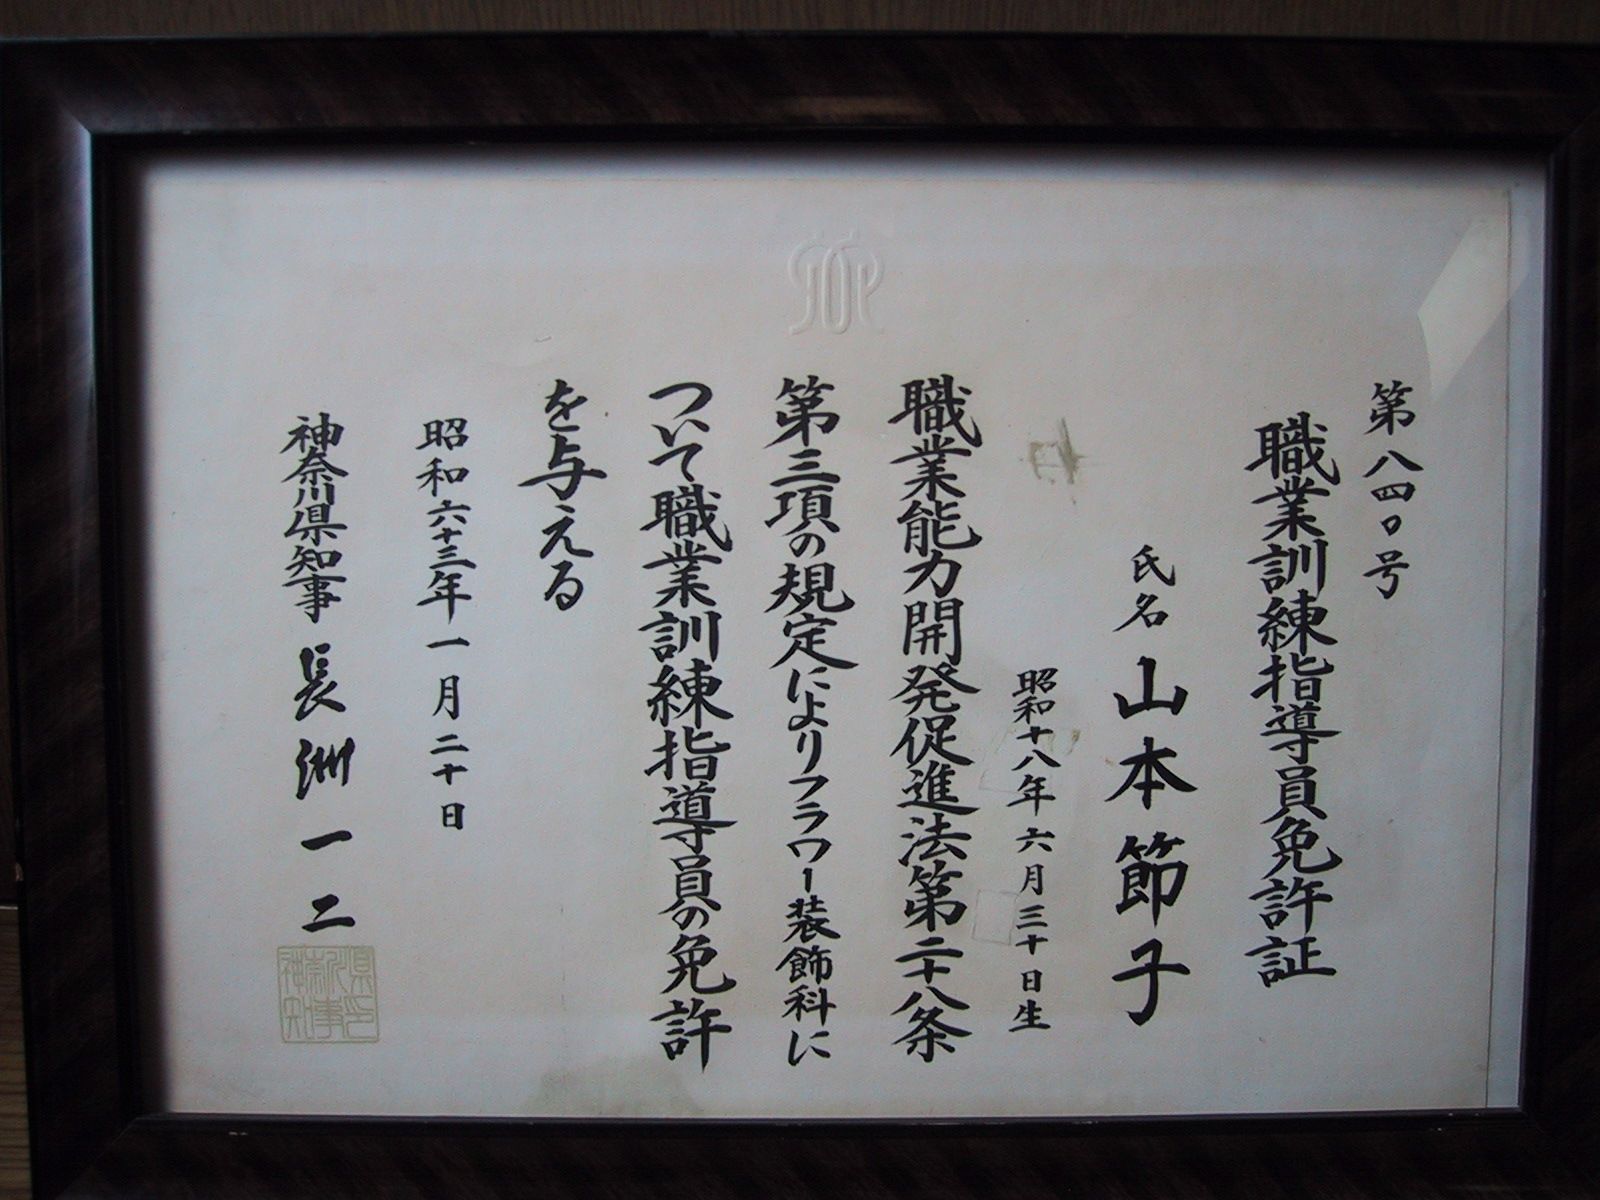 第八四〇号
職業訓練指導員免許証
氏名 山本節子
昭和十八年六月三十日生
職業能力開発促進法第二十八条
第三項の規定によりフラワー装飾科に
ついて職業訓練指導員の免許
を与える
昭和六十三年一月二十日
神奈川県知事 長洲一二